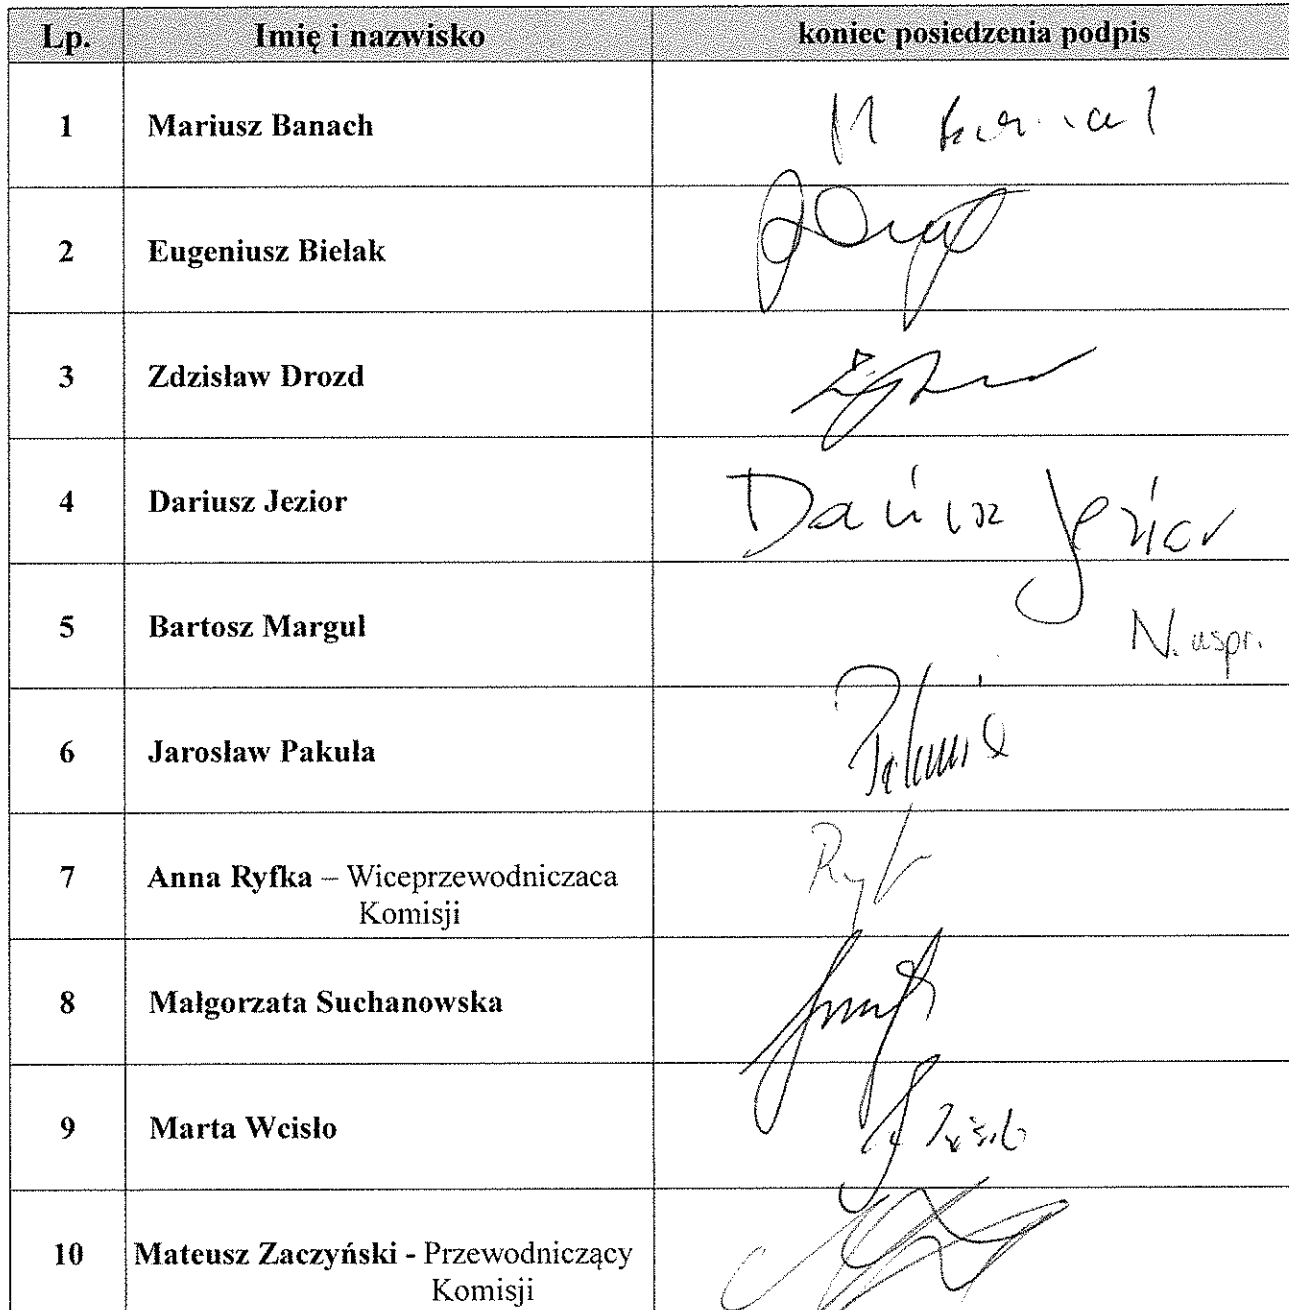 Lp. Imię i nazwisko koniec posiedzenia podpis
1 Mariusz Banach
2 Eugeniusz Bielak
3 Zdzisław Drozd
4 Dariusz Jezior Dariusz Jezior
5 Bartosz Margul N. uspr.
6 Jarosław Pakuła
7 Anna Ryfka – Wiceprzewodnicząca
Komisji
8 Małgorzata Suchanowska
9 Marta Wcisło
10 Mateusz Zaczyński - Przewodniczący
Komisji